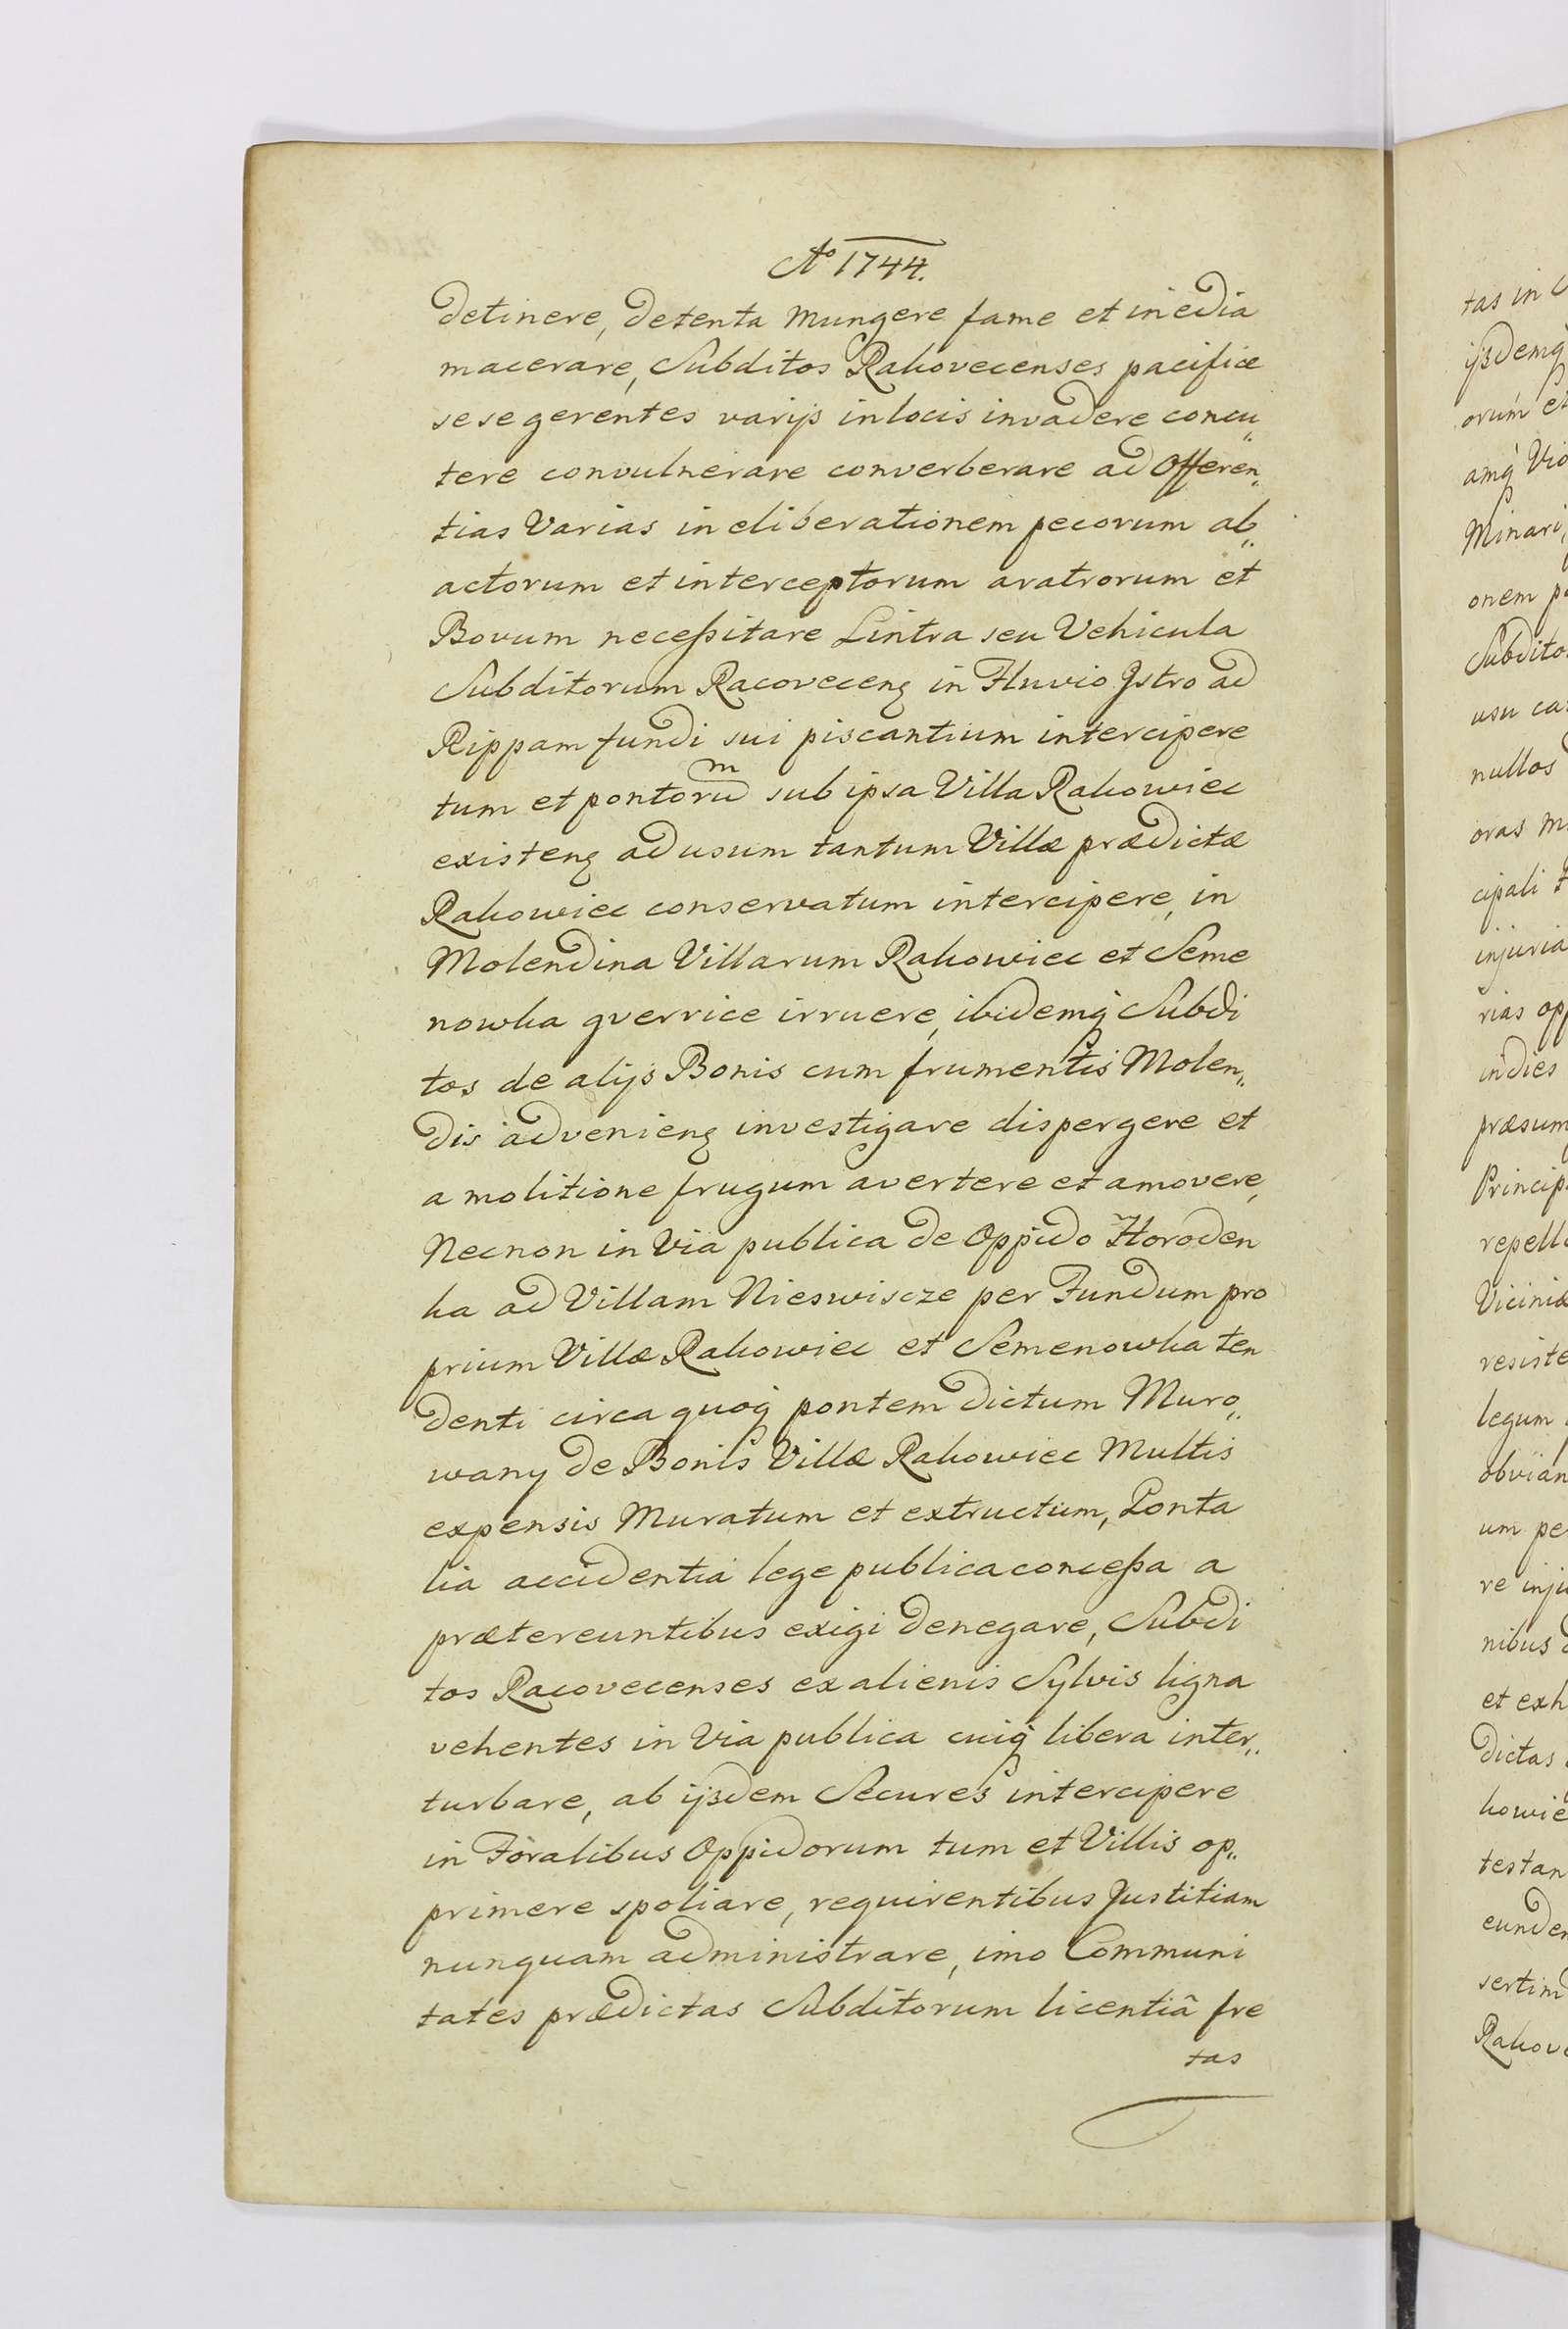 Aº 1744.
detinere, detenta Mungere fame et inedia
macerare, Subditos Rakovecenses pacifice
sese gerentes varijs in locis invadere concu„
tere convulnerare converberare ad Offeren„
tias Varias in eliberationem pecorum ab„
actorum et interceptorum aratrorum et
Bovum neceßitare Lintra seu Vehicula
Subditorum Racovecenȝ in Fluvio Istro ad
Rippam fundi sui piscantium intercipere
tum et pontorũ sub ipsa Villa Rakowiec
existenȝ ad usum tantum Villæ prædictæ
Rakowiec conservatum intercipere, in
Molendina Villarum Rakowiec et Seme
nowka gverrice irruere, ibidemq́ Subdi
tos de alijs Bonis cum frumentis Molen„
dis advenienȝ investigare dispergere et
a molitione frugum avertere et amovere,
Necnon in Via publica de Oppido Horoden
ka ad Villam Nieswiscze per Fundum pro
prium Villæ Rakowiec et Semenowka ten
denti circa quoq́ pontem dictum Muro„
wany de Bonis Villæ Rakowiec Multis
expensis Muratum et extructum, Ponta
lia accidentia lege publica conceßa a
prætereuntibus exigi denegare, Subdi
tos Racovecenses ex alienis Sylvis ligna
vehentes in Via publica cuiq́ libera inter„
turbare, ab ijsdem Secures intercipere
in Foralibus Oppidorum tum et Villis op„
primere spoliare, requirentibus Justitiam
nunquam administrare, imo Communi
tates prædictas Subditorum licentiâ fre
tas
tas in
ijsdemq́
orum et
amq́ Vio
Minari,
onem
Subdito
usu
nullos
oras
cipali
injuria
rias
indies
præsum
Princip
repell
Vicinia
resiste
legum
obvian
um pe
re inju
nibus
et exh
dictas
kowie
testan
eunde
sertim
Rakov